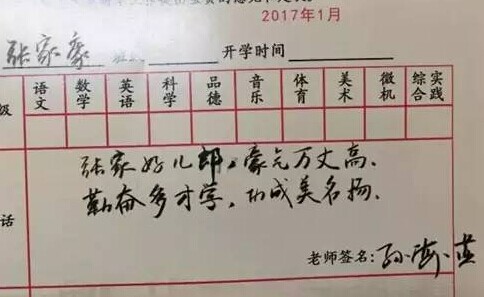 2017年1月
张家豪 开学时间
语文 数学 英语 科学 品德 音乐 体育 美术 微机 综合实践
级
张家好儿郎，豪气万丈高，
勤奋多才学，功成美名扬。
话
老师签名：孙海燕